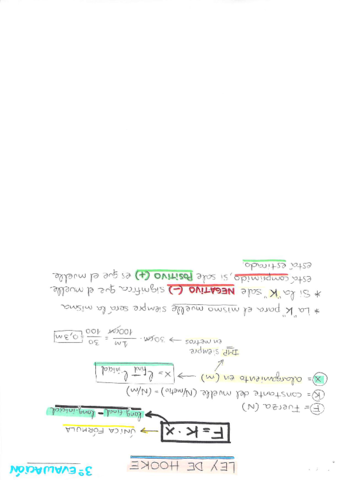 3ª EVALUACIÓN
LEY DE HOOKE
F = K · X
ÚNICA FÓRMULA
long. final - long. inicial
F = Fuerza (N)
K = constante del muelle (N/metro) = (N/m)
X = alargamiento en (m)
X = l final - l inicial
IMP siempre
en metros
30cm · 1m / 100cm = 30 / 100 = 0,3m
* La "K" para el mismo muelle siempre será la misma.
* Si la "K" sale NEGATIVO (-) significa que el muelle
está comprimido, si sale POSITIVO (+) es que el muelle
está estirado